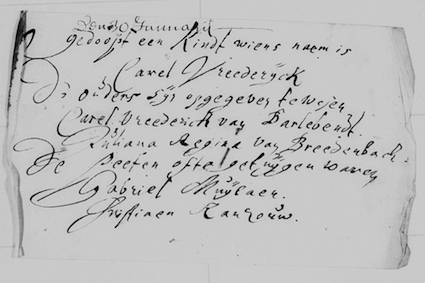 Den 30 Januarij
gedoopt een Kindt wiens naem is
Carel Vreederyck
D' ouders syn opgegeven te wesen
Carel Vreederick van Barlebendt.
Juliana Regina van Breedenbach.
De Peeten ofte getuygen waren
Gabriel Muylaer.
Christiaen Ranzouw.